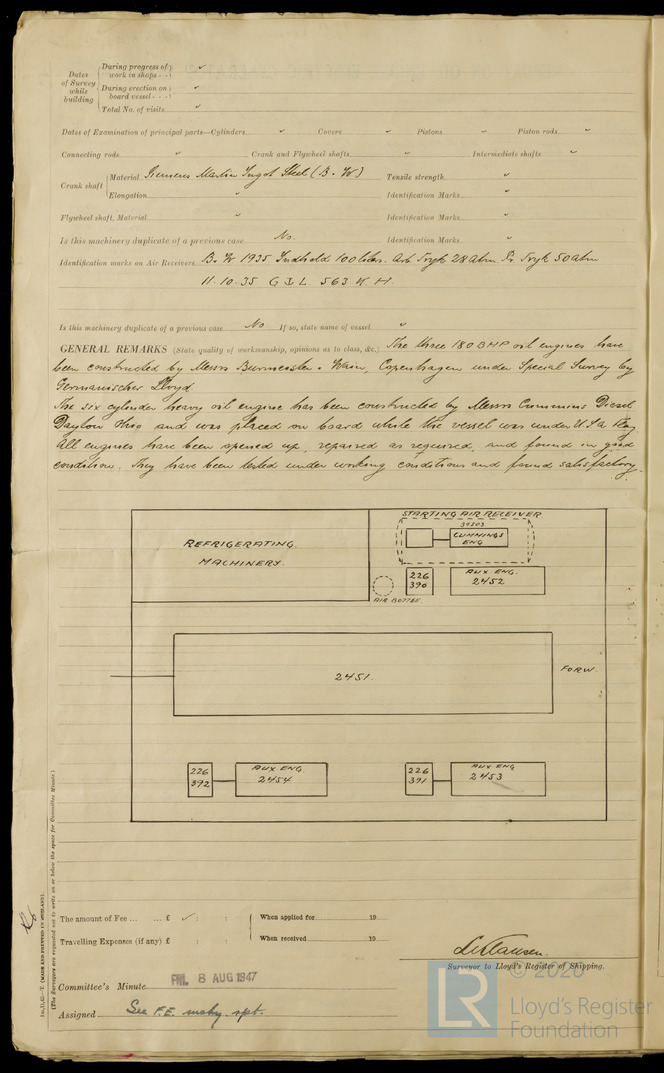 Dates of Survey while building
During progress of work in shops - -
During erection on board vessel - - -
Total No. of visits
Dates of Examination of principal parts—Cylinders Covers Pistons Piston rods
Connecting rods Crank and Flywheel shafts Intermediate shafts
Crank shaft Material Siemens Martin Ingot Steel (B. W) Tensile strength
Elongation Identification Marks
Flywheel shaft, Material Identification Marks
Is this machinery duplicate of a previous case No. Identification Marks
Identification marks on Air Receivers B. W 1935 Indhold 100 liter. Arb Tryk 28 atm. Pr Tryk 50 atm
11.10.35 G & L 563 W. H.
Is this machinery duplicate of a previous case No If so, state name of vessel
GENERAL REMARKS (State quality of workmanship, opinions as to class, &c., The three 180 BHP oil engines have
been constructed by Messrs Burmeister & Wain, Copenhagen under Special Survey by
Germanischer Lloyd
The six cylinder heavy oil engine has been constructed by Messrs Cummins Diesel
Dayton Ohio and was placed on board while the vessel was under U.S.A. flag.
All engines have been opened up, repaired as required, and found in good
condition. They have been tested under working conditions and found satisfactory.
STARTING AIR RECEIVER
39503
CUMMINGS
ENG
REFRIGERATING.
MACHINERY.
226
390
AUX ENG.
2452
AIR BOTTLE.
2451.
FORW.
226
392
AUX ENG.
2454
226
391
AUX ENG
2453
The amount of Fee ... ... £ : : When applied for 19
Travelling Expenses (if any) £ : : When received 19
Surveyor to Lloyd's Register of Shipping.
Committee's Minute FRI. 8 AUG 1947
Assigned See F.E. mchy. rpt.
(MADE AND PRINTED IN ENGLAND.)
(The Surveyors are requested not to write on or below the space for Committee Minute.)
LR
© 2020
Lloyd's Register
Foundation